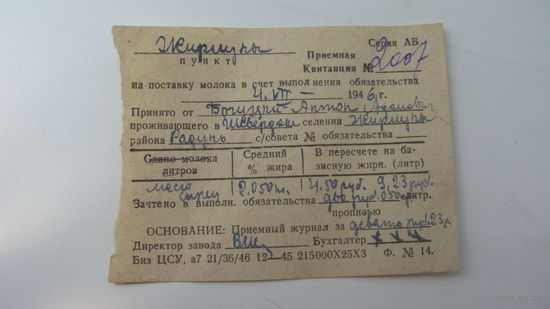 Жирмуны Серия АБ
пункт Приемная
Квитанция № 2007
на поставку молока в счет выполнения обязательства
4.VII — 1946 г.
Принято от Богуцкий Антон
проживающего в селении Жирмуны
района Радунь с/совета № обязательства
Сдано молока литров Средний % жира В пересчете на базисную жирн. (литр)
масло 2.050 4.50 руб. 9,23 руб.
Зачтено в выполн. обязательства два литр.
прописью
ОСНОВАНИЕ: Приемный журнал за девять руб. 23 к
Директор завода Бухгалтер
Биз ЦСУ, а7 21/36/46 12—45 215000Х25Х3 Ф. № 14.